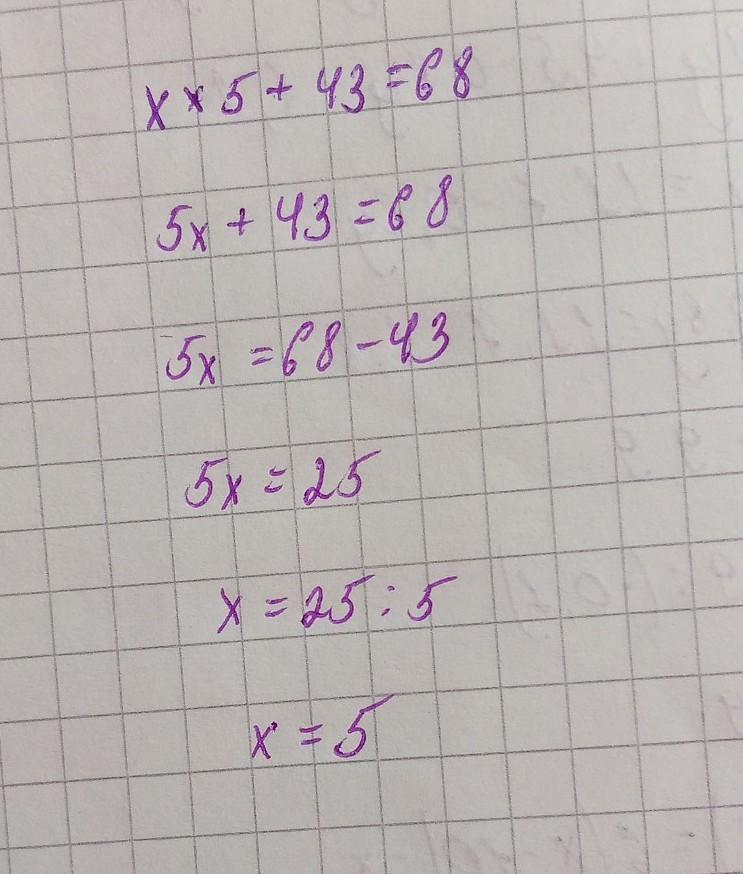 x × 5 + 43 = 68
5x + 43 = 68
5x = 68 - 43
5x = 25
x = 25 : 5
x = 5